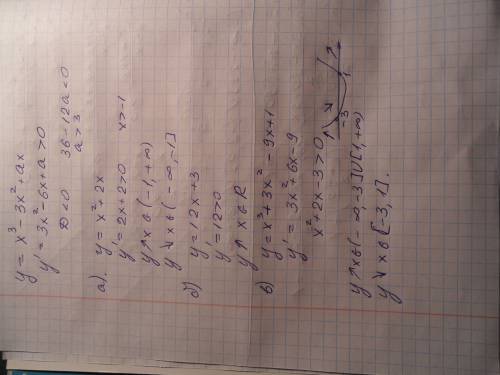 y = x³ - 3x² + ax
y' = 3x² - 6x + a > 0
D < 0  36 - 12a < 0
a > 3
а). y = x² + 2x
y' = 2x + 2 > 0  x > -1
y↑ x ∈ (-1, +∞)
y↘ x ∈ (-∞, -1]
б) y = 12x + 3
y' = 12 > 0
y↑ x ∈ R
в) y = x³ + 3x² - 9x + 1
y' = 3x² + 6x - 9
x² + 2x - 3 > 0
-3 1
y↑ x ∈ (-∞, -3] U [1, +∞)
y↘ x ∈ [-3, 1].